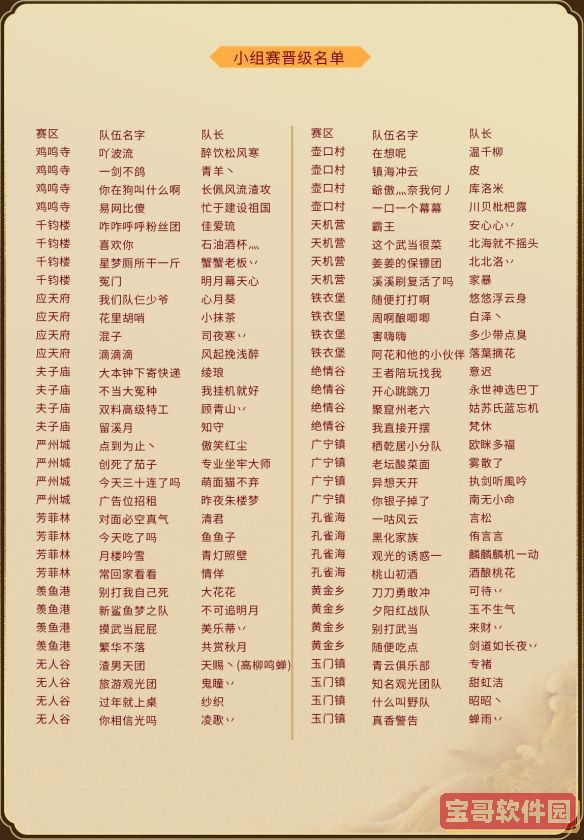 小组赛晋级名单
赛区 队伍名字 队长
鸡鸣寺 吖波流 醉饮松风寒
鸡鸣寺 一剑不鸽 青羊丶
鸡鸣寺 你在狗叫什么啊 长佩风流渣攻
鸡鸣寺 易网比傻 忙于建设祖国
千钧楼 咋咋呼呼粉丝团 佳爱琉
千钧楼 喜欢你 石油酒杯灬
千钧楼 星梦厕所干一斤 蟹蟹老板丷
千钧楼 冤门 明月幕天心
应天府 我们队仨少爷 心月葵
应天府 花里胡哨 小抹茶
应天府 混子 司夜寒丷
应天府 滴滴滴 风起挽浅醉
夫子庙 大本钟下寄快递 绫琅
夫子庙 不当大冤种 我挂机就好
夫子庙 双料高级特工 顾青山丷
夫子庙 留溪月 知守
严州城 点到为止丶 傲笑红尘
严州城 创死了茄子 专业坐牢大师
严州城 今天三十连了吗 萌面猫不弃
严州城 广告位招租 昨夜朱楼梦
芳菲林 对面必空真气 清君
芳菲林 今天吃了吗 鱼鱼子
芳菲林 月楼吟雪 青灯照壁
芳菲林 常回家看看 情佯
羡鱼港 别打我自己死 大花花
羡鱼港 新鲨鱼梦之队 不可追明月
羡鱼港 摸武当屁屁 美乐蒂丷
羡鱼港 繁华不落 共赏秋月
无人谷 渣男天团 天赐丶(高柳鸣蝉)
无人谷 旅游观光团 鬼瞳丷
无人谷 过年就上桌 纱织
无人谷 你相信光吗 凌歌丷
赛区 队伍名字 队长
壶口村 在想呢 温千柳
壶口村 镇海冲云 皮
壶口村 爺傲灬奈我何丿 库洛米
壶口村 一口一个幕幕 川贝枇杷露
天机营 霸王 安心心丷
天机营 这个武当很菜 北海就不摇头
天机营 姜姜的保镖团 北北洛丷
天机营 溪溪刷复活了吗 家暴
铁衣堡 随便打打啊 悠悠浮云身
铁衣堡 周啊酿唧唧 白泽丶
铁衣堡 害嗨嗨 多少带点臭
铁衣堡 阿花和他的小伙伴 落葉摘花
绝情谷 王者陪玩找我 意迟
绝情谷 开心跳跳刀 永世神选巴丁
绝情谷 聚窟州老六 姑苏氏蓝忘机
绝情谷 我直接开摆 梵休
广宁镇 栖乾居小分队 欧眯多福
广宁镇 老坛酸菜面 雾散了
广宁镇 异想天开 执剑听風吟
广宁镇 你银子掉了 南无小命
孔雀海 一咕风云 言松
孔雀海 黑化家族 侑言言
孔雀海 观光的诱惑一 麟麟麟机一动
孔雀海 桃山初酒 酒酿桃花
黄金乡 刀刀勇敢冲 可待丷
黄金乡 夕阳红战队 玉不生气
黄金乡 别打武当 来财丷
黄金乡 随便吃点 剑道如长夜丷
玉门镇 青云俱乐部 专褚
玉门镇 知名观光团队 甜虹洁
玉门镇 什么叫野队 昭昭丶
玉门镇 真香警告 蝉雨丷
宝哥软件园